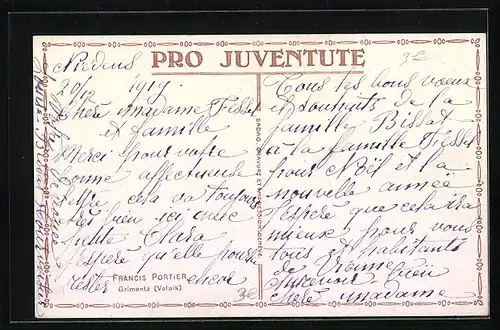 PRO JUVENTUTE
20/12 1919.
Chère madame Fisset
et famille
Merci pour votre
bonne affectueuse
lettre cela va toujours
très bien ici avec
petite Clara
j'espère qu'elle pourra
rester encor
FRANCIS PORTIER
Grimentz (Valais)
SADAG GRAVURE ET IMPRESSION GENÈVE
Tous les bons voeux
et souhaits de la
famille Bisset
à la famille Fisset
pour Noël et la
nouvelle année
J'espère que cela ira
mieux pour vous
tous et habitants
de Vienne
Aurevoir bien
chère madame